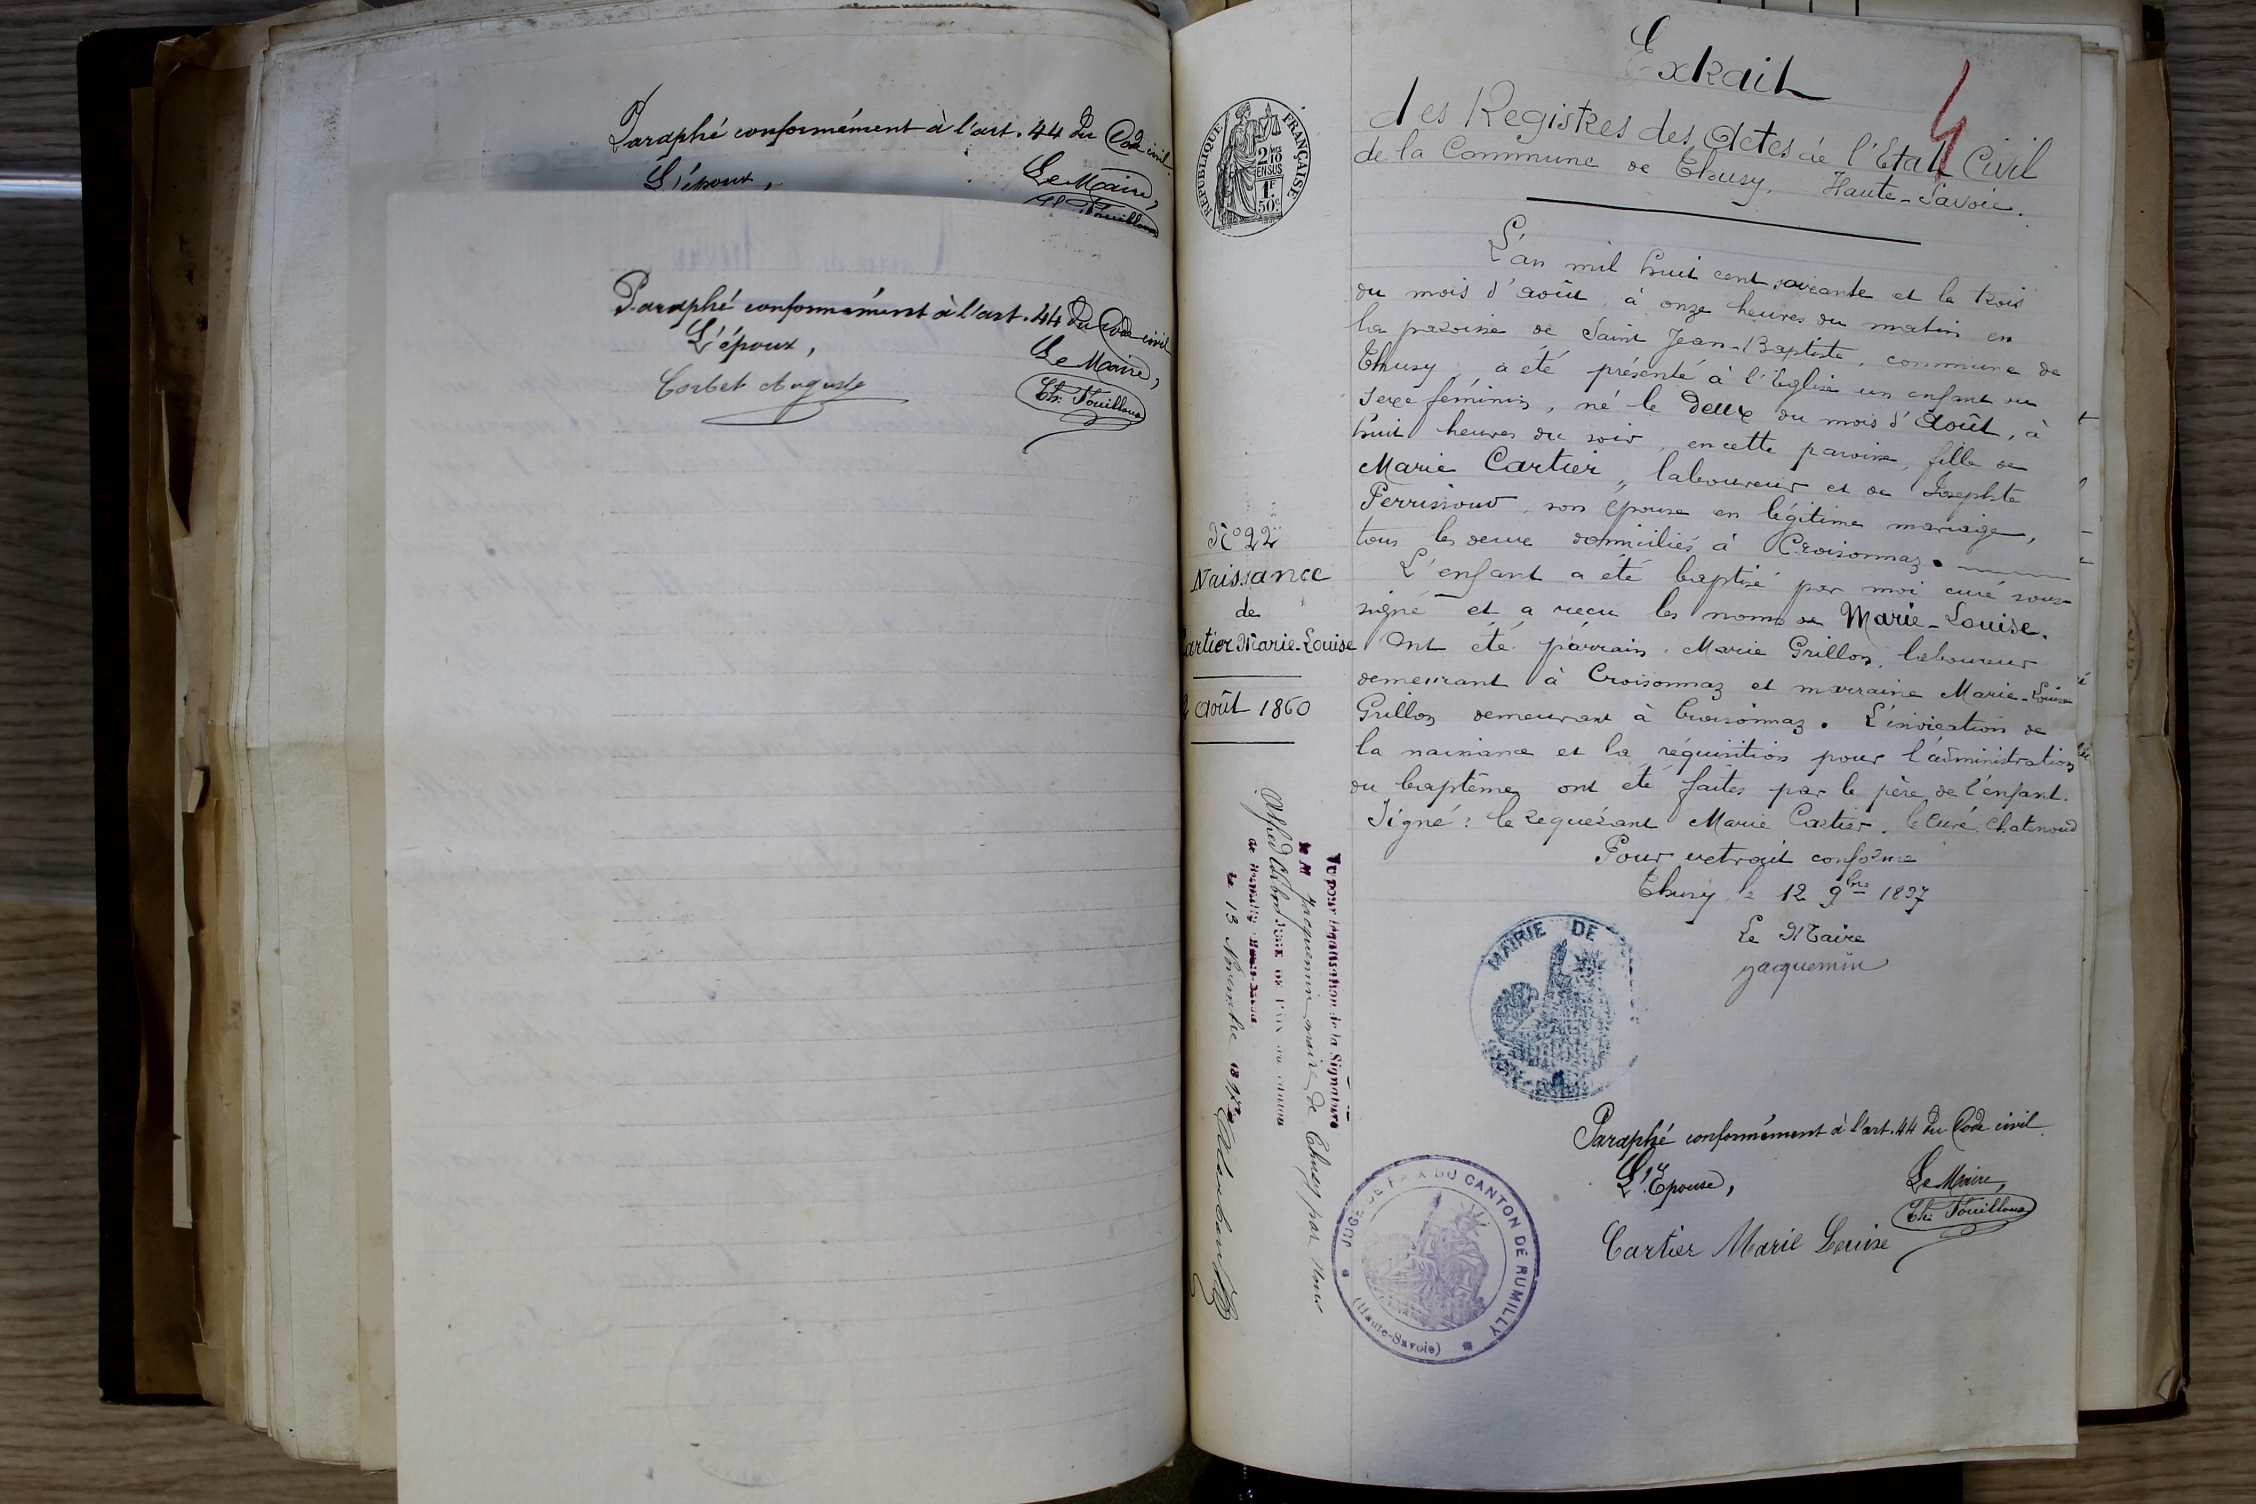 Paraphé conformément à l'art. 44 du Code civil
L'époux,
Le Maire,
Paraphé conformément à l'art. 44 du Code civil
L'époux,
Le Maire,
Corbet Auguste
Th. Fouilloux
Extrait
des Registres des Actes de l'Etat Civil
de la Commune de Thusy. Haute-Savoie.
RÉPUBLIQUE FRANÇAISE
2/10 EN SUS
1F 50c
L'an mil huit cent soixante et le trois
du mois d'août, à onze heures du matin en
la paroisse de Saint Jean-Baptiste, commune de
Thusy, a été présenté à l'Eglise un enfant du
sexe féminin, né le deux du mois d'Août, à
huit heures du soir, en cette paroisse, fille de
Marie Cartier, laboureur et de Josephte
Perrissoud, son épouse en légitime mariage,
tous les deux domiciliés à Croisonnaz.
L'enfant a été baptisé par moi curé sous-
signé et a reçu les noms de Marie-Louise.
Ont été parrain, Marie Grillon, laboureur
demeurant à Croisonnaz et marraine Marie-Louise
Grillon demeurant à Croisonnaz. L'indication de
la naissance et la réquisition pour l'administration
du baptême ont été faites par le père de l'enfant.
Signé: le requérant Marie Cartier, le curé, Chatenoud
Pour extrait conforme
Thusy le 12 9bre 1897
Le Maire
Jacquemin
No 22
Naissance
de
Cartier Marie-Louise
2 août 1860
Vu pour légalisation de la Signature
de M Jacquemin maire de Thusy par nous
JUGE DE PAIX du canton
de Rumilly Haute-Savoie
le 13 Novembre 1897
MAIRIE DE
JUGE DE PAIX DU CANTON DE RUMILLY
(Haute-Savoie)
Paraphé conformément à l'art. 44 du Code civil
L'Epouse,
Le Maire,
Th. Fouilloux
Cartier Marie Louise